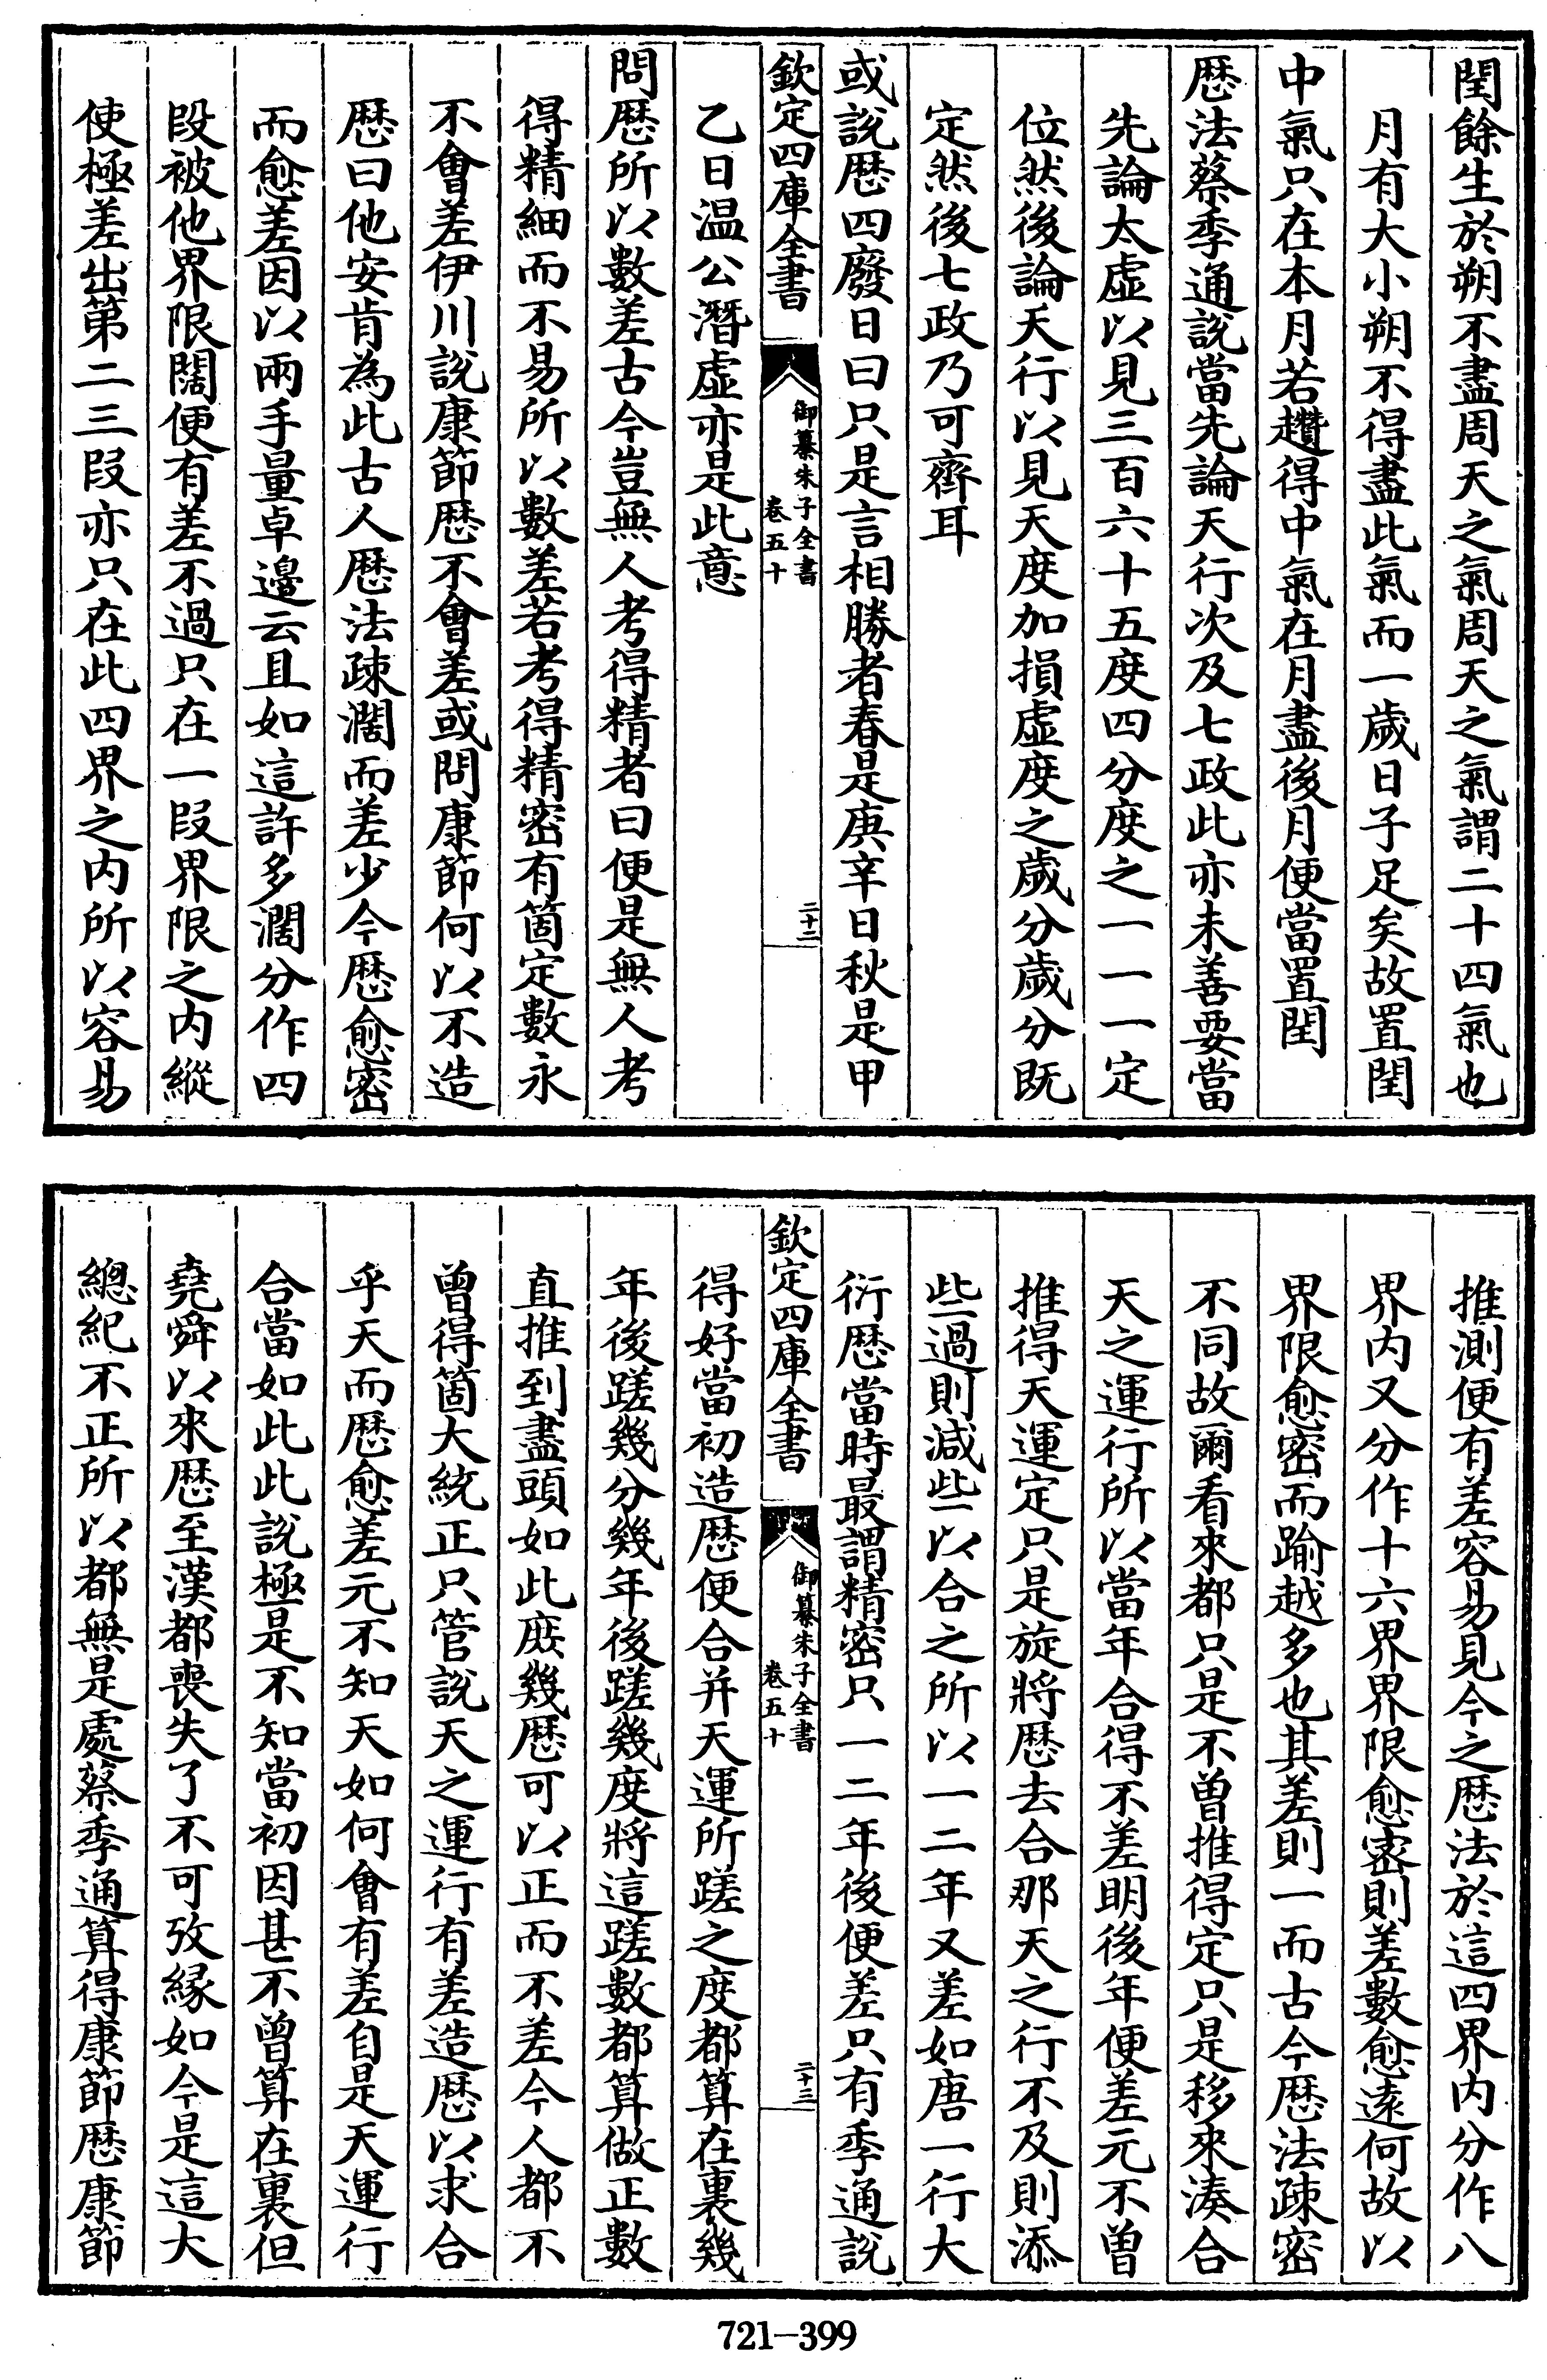 閏餘生於朔不盡周天之氣周天之氣謂二十四氣也
月有大小朔不得盡此氣而一歲日子足矣故置閏
中氣只在本月若趲得中氣在月盡後月便當置閏
歴法蔡季通說當先論天行次及七政此亦未善要當
先論太虚以見三百六十五度四分度之一一一定
位然後論天行以見天度加損虚度之歲分歲分既
定然後七政乃可齊耳
或說歴四廢日曰只是言相勝者春是庚辛日秋是甲
欽定四庫全書
御纂朱子全書
卷五十
二十二
乙日温公潛虚亦是此意
問歴所以數差古今豈無人考得精者曰便是無人考
得精細而不易所以數差若考得精密有箇定數永
不會差伊川說康節歴不會差或問康節何以不造
歴曰他安肯為此古人歴法疎濶而差少今歴愈密
而愈差因以兩手量卓邊云且如這許多濶分作四
段被他界限闊便有差不過只在一段界限之内縱
使極差出第二三段亦只在此四界之内所以容易
推測便有差容易見今之歴法於這四界内分作八
界内又分作十六界界限愈密則差數愈逺何故以
界限愈密而踰越多也其差則一而古今歴法疎密
不同故爾看來都只是不曾推得定只是移來湊合
天之運行所以當年合得不差明後年便差元不曾
推得天運定只是旋將歴去合那天之行不及則添
些過則減些以合之所以一二年又差如唐一行大
衍歴當時最謂精密只一二年後便差只有季通說
欽定四庫全書
御纂朱子全書
卷五十
二十三
得好當初造歴便合并天運所蹉之度都算在裏幾
年後蹉幾分幾年後蹉幾度將這蹉數都算做正數
直推到盡頭如此庻幾歴可以正而不差今人都不
曾得箇大統正只管說天之運行有差造歴以求合
乎天而歴愈差元不知天如何會有差自是天運行
合當如此此說極是不知當初因甚不曾算在裏但
堯舜以來歴至漢都喪失了不可攷緣如今是這大
總紀不正所以都無是處蔡季通算得康節歴康節
721—399